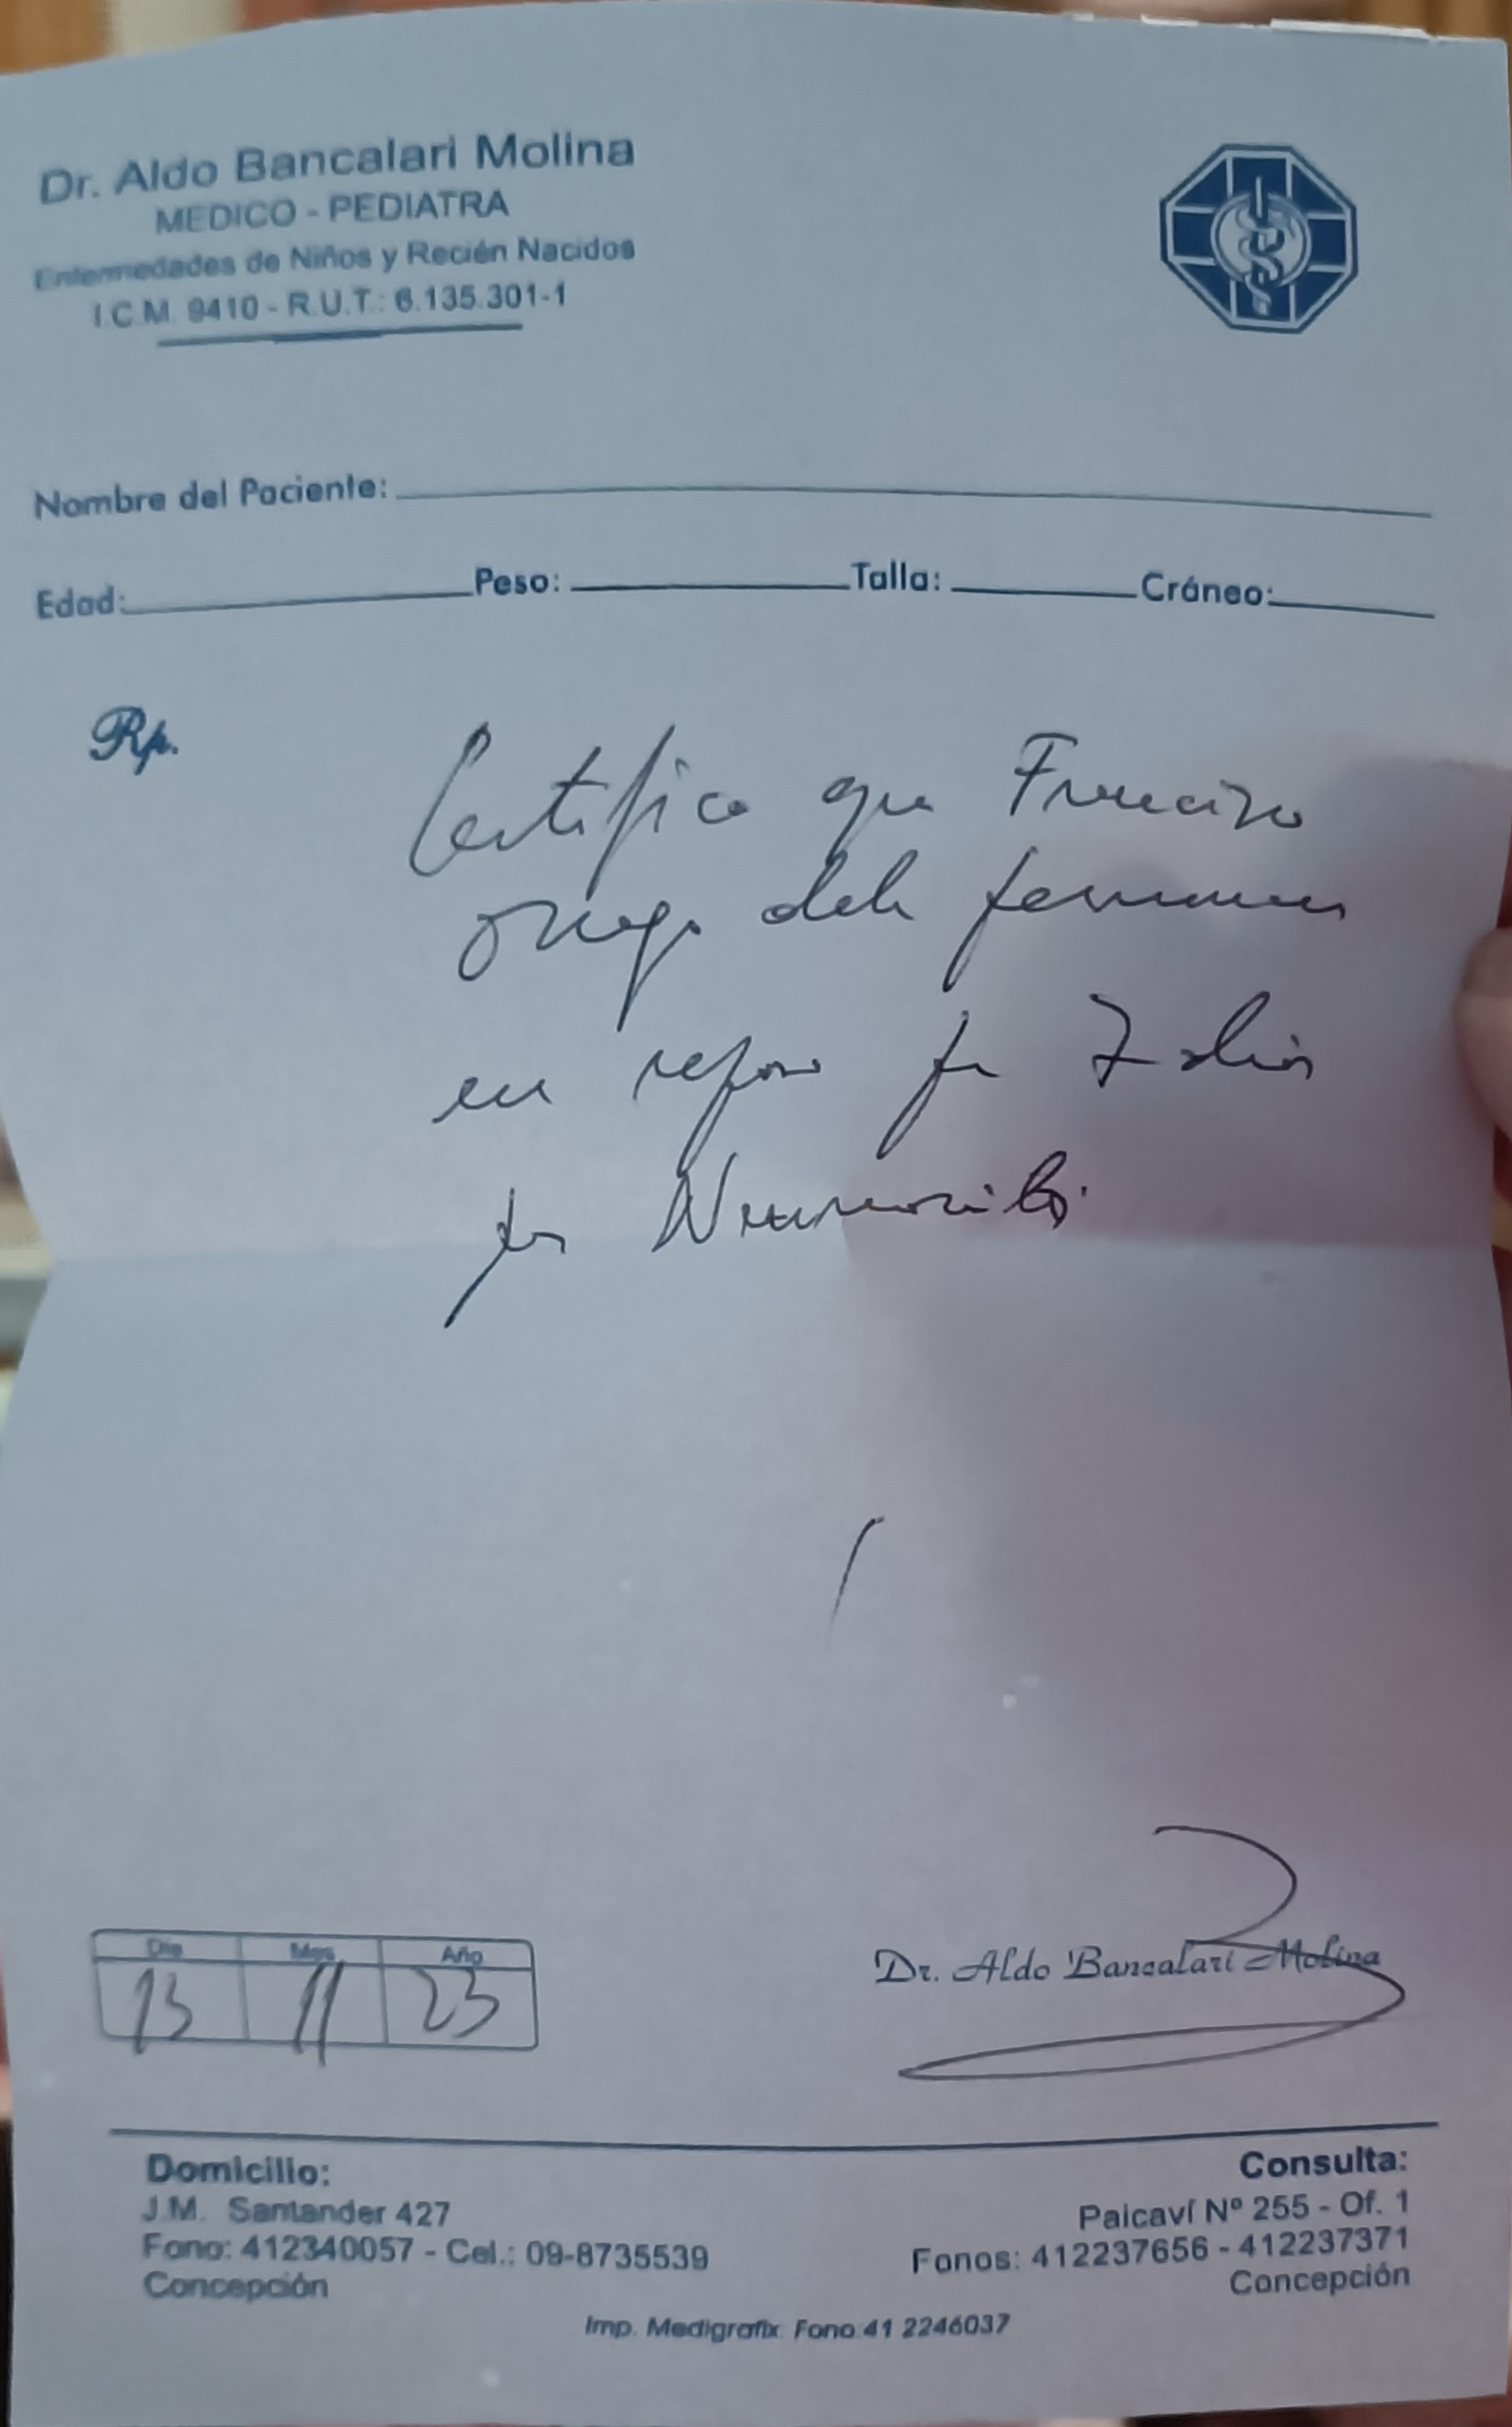 Dr. Aldo Bancalari Molina
MEDICO - PEDIATRA
Enfermedades de Niños y Recién Nacidos
I.C.M. 9410 - R.U.T.: 6.135.301-1
Nombre del Paciente:
Edad: Peso: Talla: Cráneo:
Rp.
Certifico que Francisco
debe permanecer
en reposo por 7 días
por
Día Mes Año
13 11 23
Dr. Aldo Bancalari Molina
Domicilio:
J.M. Santander 427
Fono: 412340057 - Cel.: 09-8735539
Concepción
Consulta:
Paicaví Nº 255 - Of. 1
Fonos: 412237656 - 412237371
Concepción
Imp. Medigrafix Fono 41 2246037